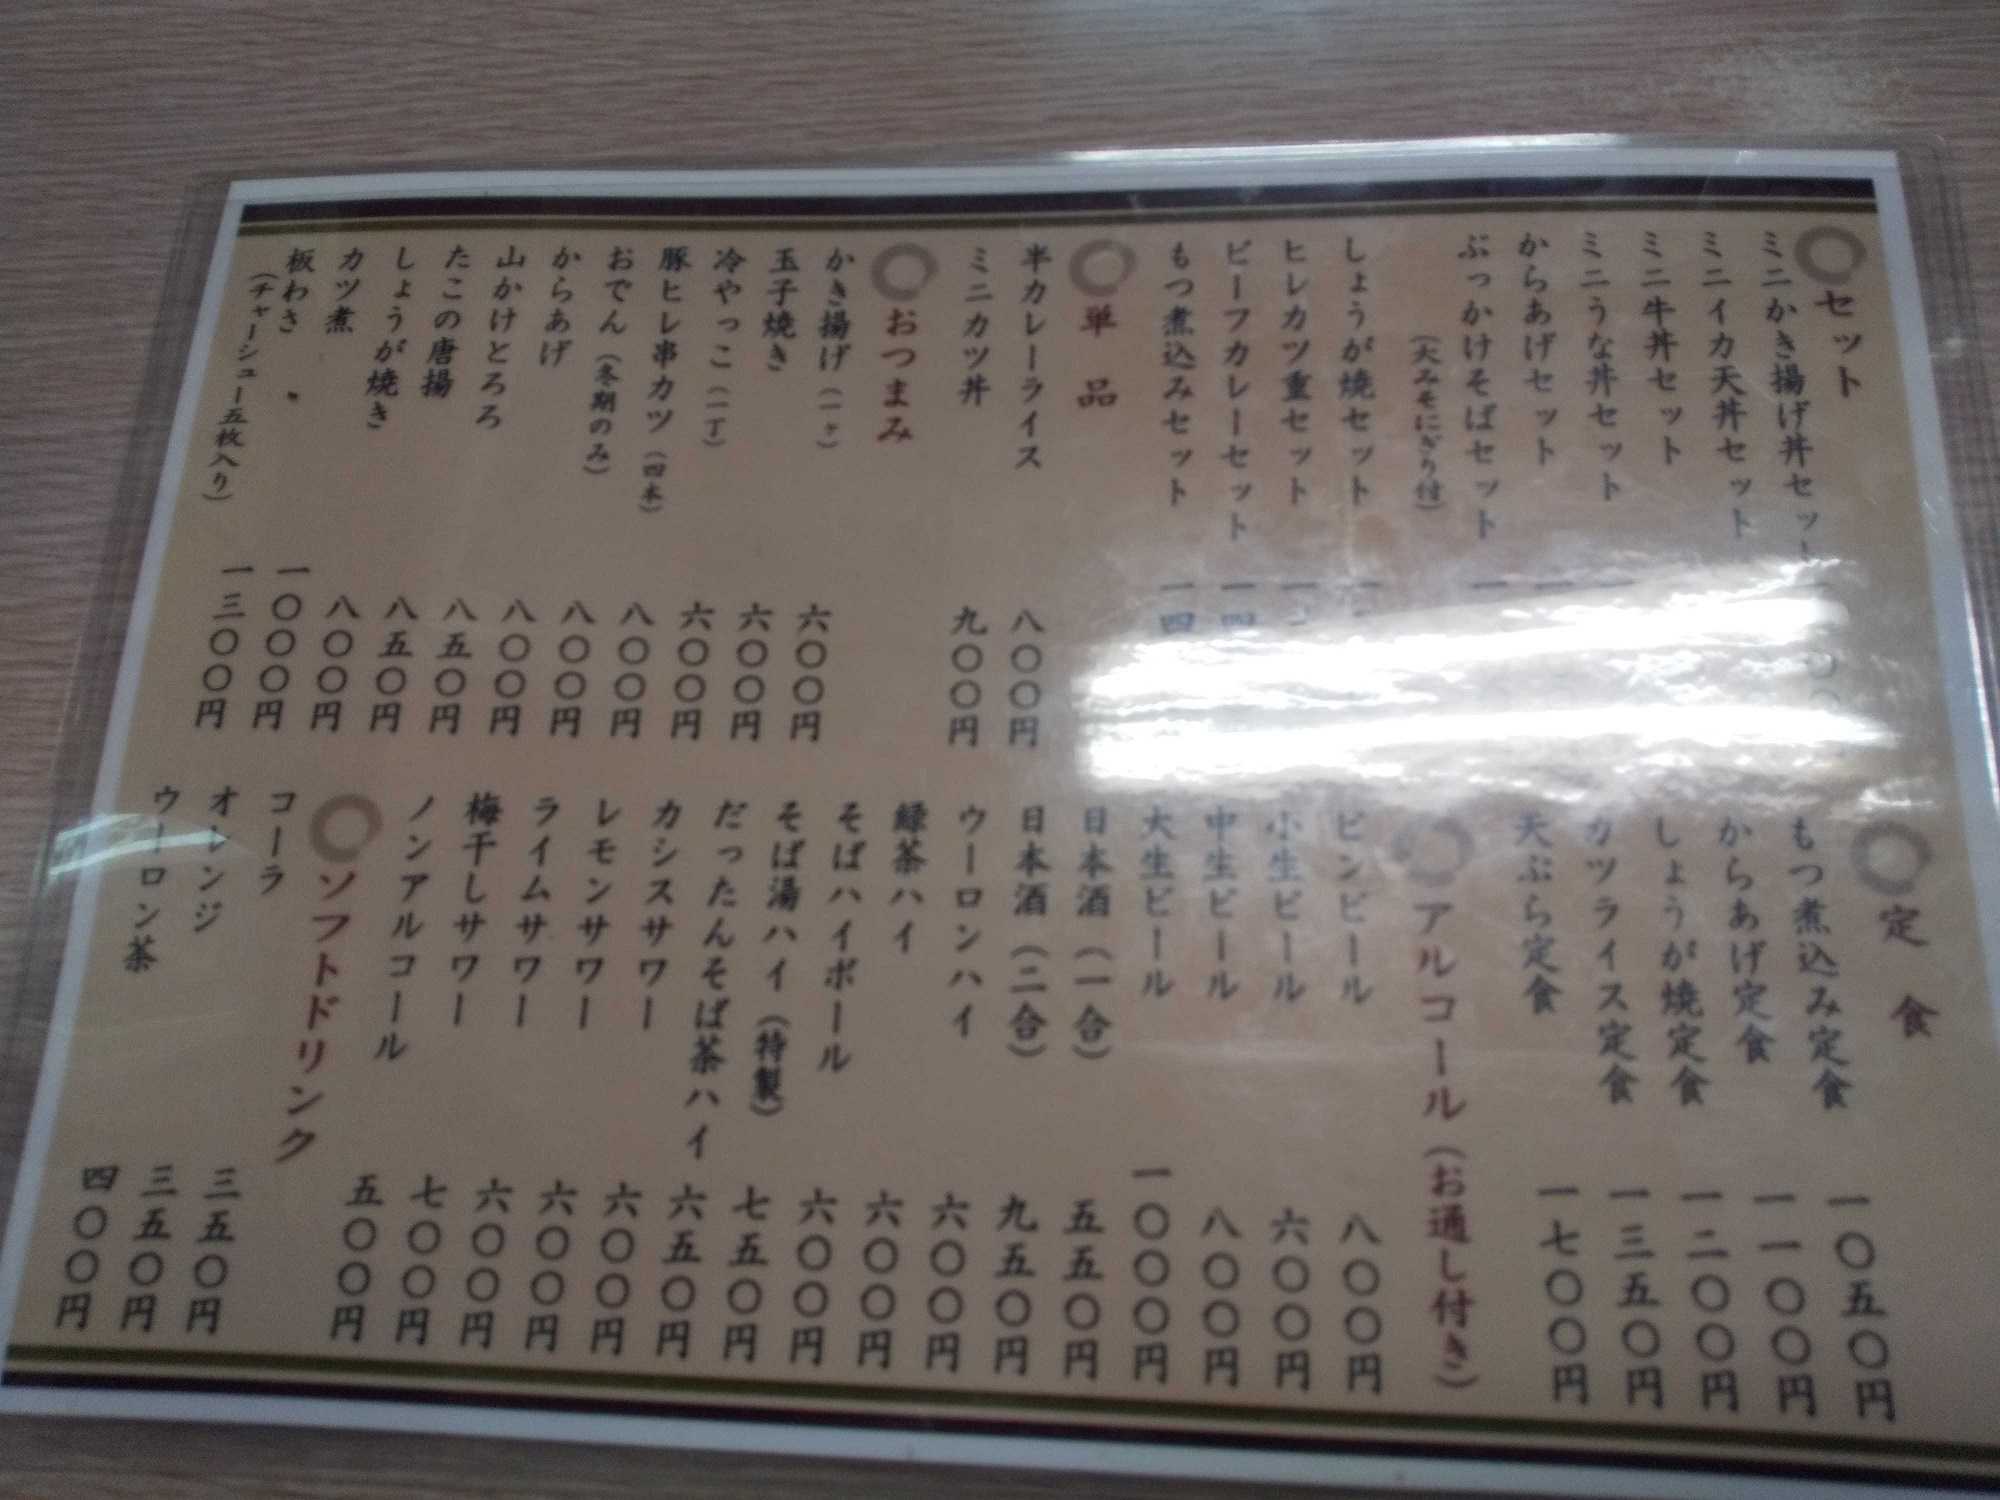 セット
ミニかき揚げ丼セット
ミニイカ天丼セット
ミニ牛丼セット
ミニうな丼セット
からあげセット
ぶっかけそばセット
（大みそにぎり付）
しょうが焼セット
ヒレカツ重セット
ビーフカレーセット
もつ煮込みセット
単品
半カレーライス 八〇〇円
ミニカツ丼 九〇〇円
おつまみ
かき揚げ（一ヶ） 六〇〇円
玉子焼き 六〇〇円
冷やっこ（一丁） 六〇〇円
豚ヒレ串カツ（四本） 八〇〇円
おでん（冬期のみ） 八〇〇円
からあげ 八〇〇円
山かけとろろ 八五〇円
たこの唐揚 八五〇円
しょうが焼き 八〇〇円
カツ煮 一〇〇〇円
板わさ
（チャーシュー五枚入り） 一三〇〇円
定食
もつ煮込み定食 一〇五〇円
からあげ定食 一一〇〇円
しょうが焼定食 一二〇〇円
カツライス定食 一三五〇円
天ぷら定食 一七〇〇円
アルコール（お通し付き）
ビンビール 八〇〇円
小生ビール 六〇〇円
中生ビール 八〇〇円
大生ビール 一〇〇〇円
日本酒（一合） 五五〇円
日本酒（二合） 九五〇円
ウーロンハイ 六〇〇円
緑茶ハイ 六〇〇円
そばハイボール 六〇〇円
そば湯ハイ（特製） 七五〇円
だったんそば茶ハイ 六五〇円
カシスサワー 六〇〇円
レモンサワー 六〇〇円
ライムサワー 六〇〇円
梅干しサワー 七〇〇円
ノンアルコール 五〇〇円
ソフトドリンク
コーラ 三五〇円
オレンジ 三五〇円
ウーロン茶 四〇〇円